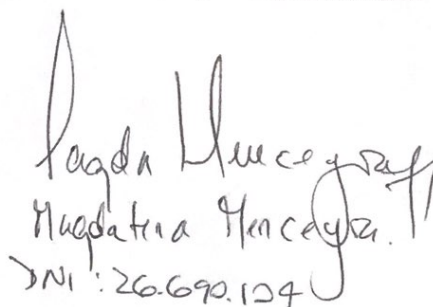 Magda Menceyra
Magdalena Menceyra.
DNI: 26.690.124